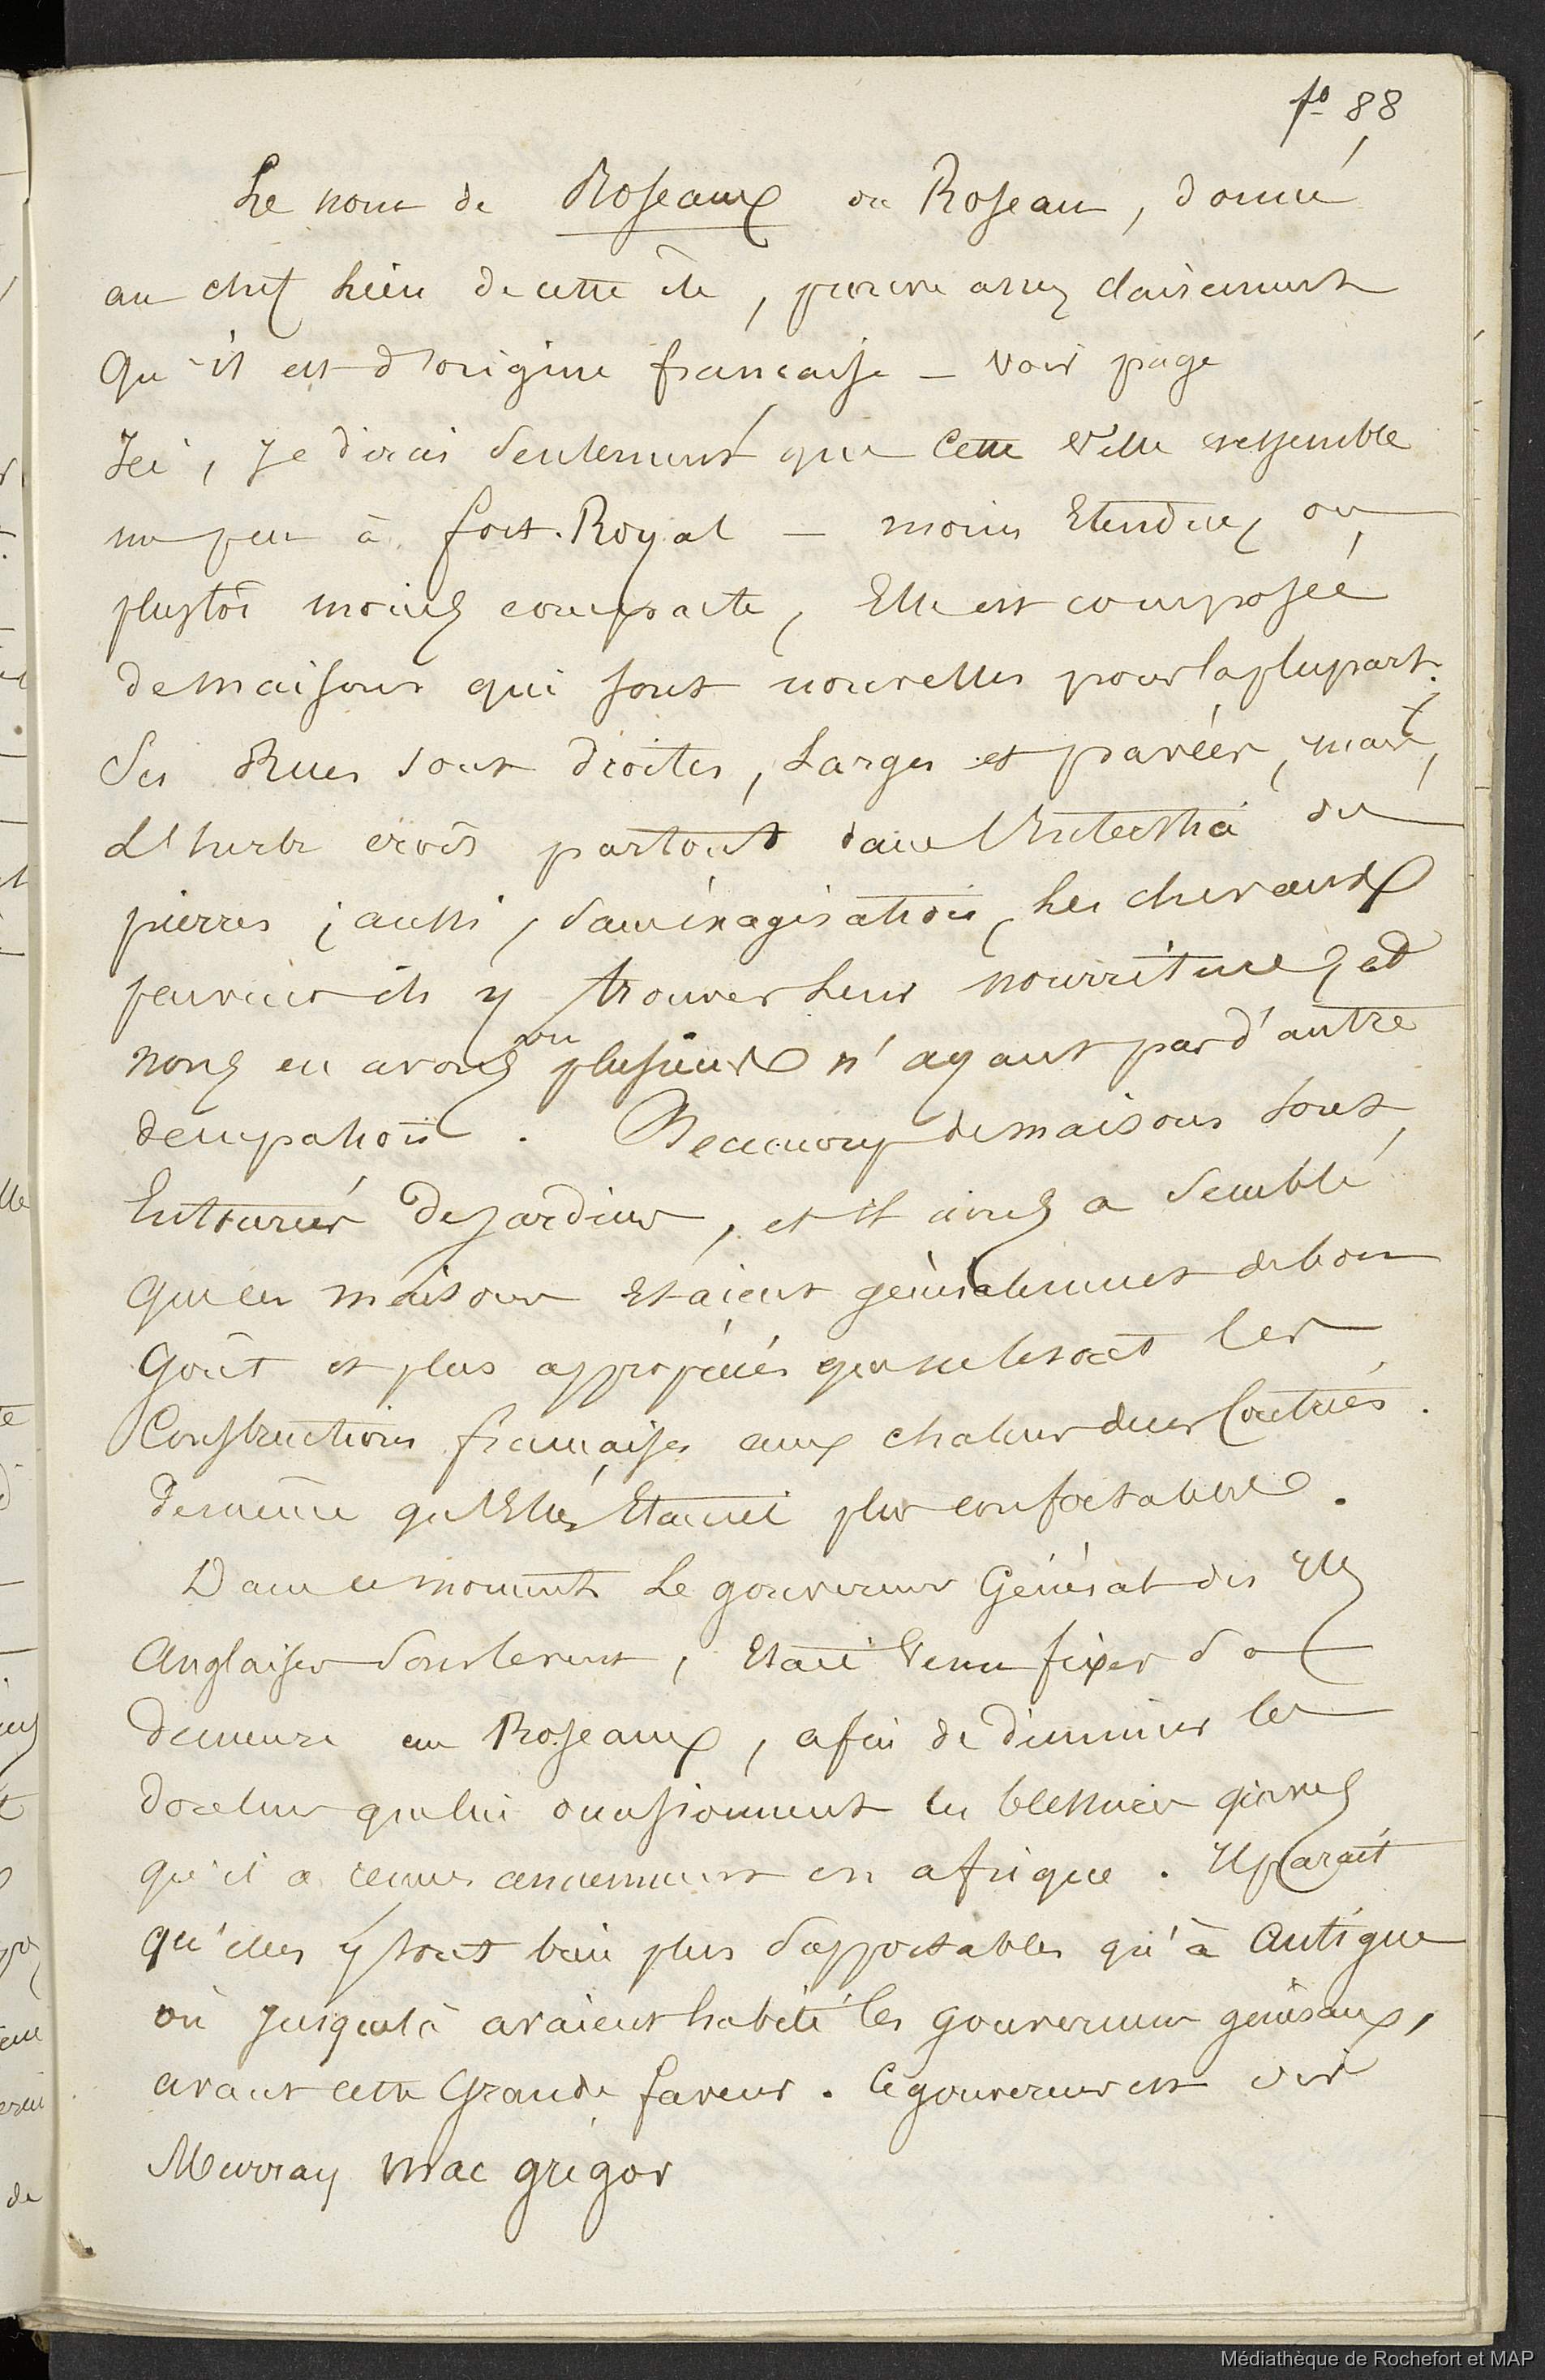 fo 88
Le nom de Roseaux ou Roseau, donné
au chef lieu de cette île, prouve assez clairement
qu'il est d'origine française – voir page
Ici, je dirai seulement que cette ville ressemble
un peu à fort-Royal – moins Etendue, ou
plustôt moins compacte, Elle est composée
de maisons qui sont nouvelles pour la plupart.
Ses Rues sont droites, Larges et pavées, mais,
L'herbe croît partout dans l'Interstice des
pierres ; aussi, sans exagération, les chevaux
peuvent-ils y trouver leur nourriture, et
nous en avons vu plusieurs n'ayant pas d'autre
occupation. Beaucoup de maisons sont
Entourées de jardins, et il nous a semblé
que ces maisons Etaient généralement de bon
Goût et plus appropriées que ne le sont les
Constructions françaises aux chaleurs des Contrées.
de même qu'Elles Etaient plus confortables.
Dans ce moment Le gouverneur Général des Iles
Anglaises sous le vent, Etait Venu fixer sa
demeure au Roseaux, afin de diminuer les
douleurs que lui occasionnent les blessures graves
qu'il a reçues anciennement en afrique. Il parait
qu'elles y sont bien plus supportables qu'à Antigue
où jusque là avaient habité les gouverneurs généraux,
avant cette Grande faveur. Ce gouverneur est sir
Murray mac grégor
Médiathèque de Rochefort et MAP